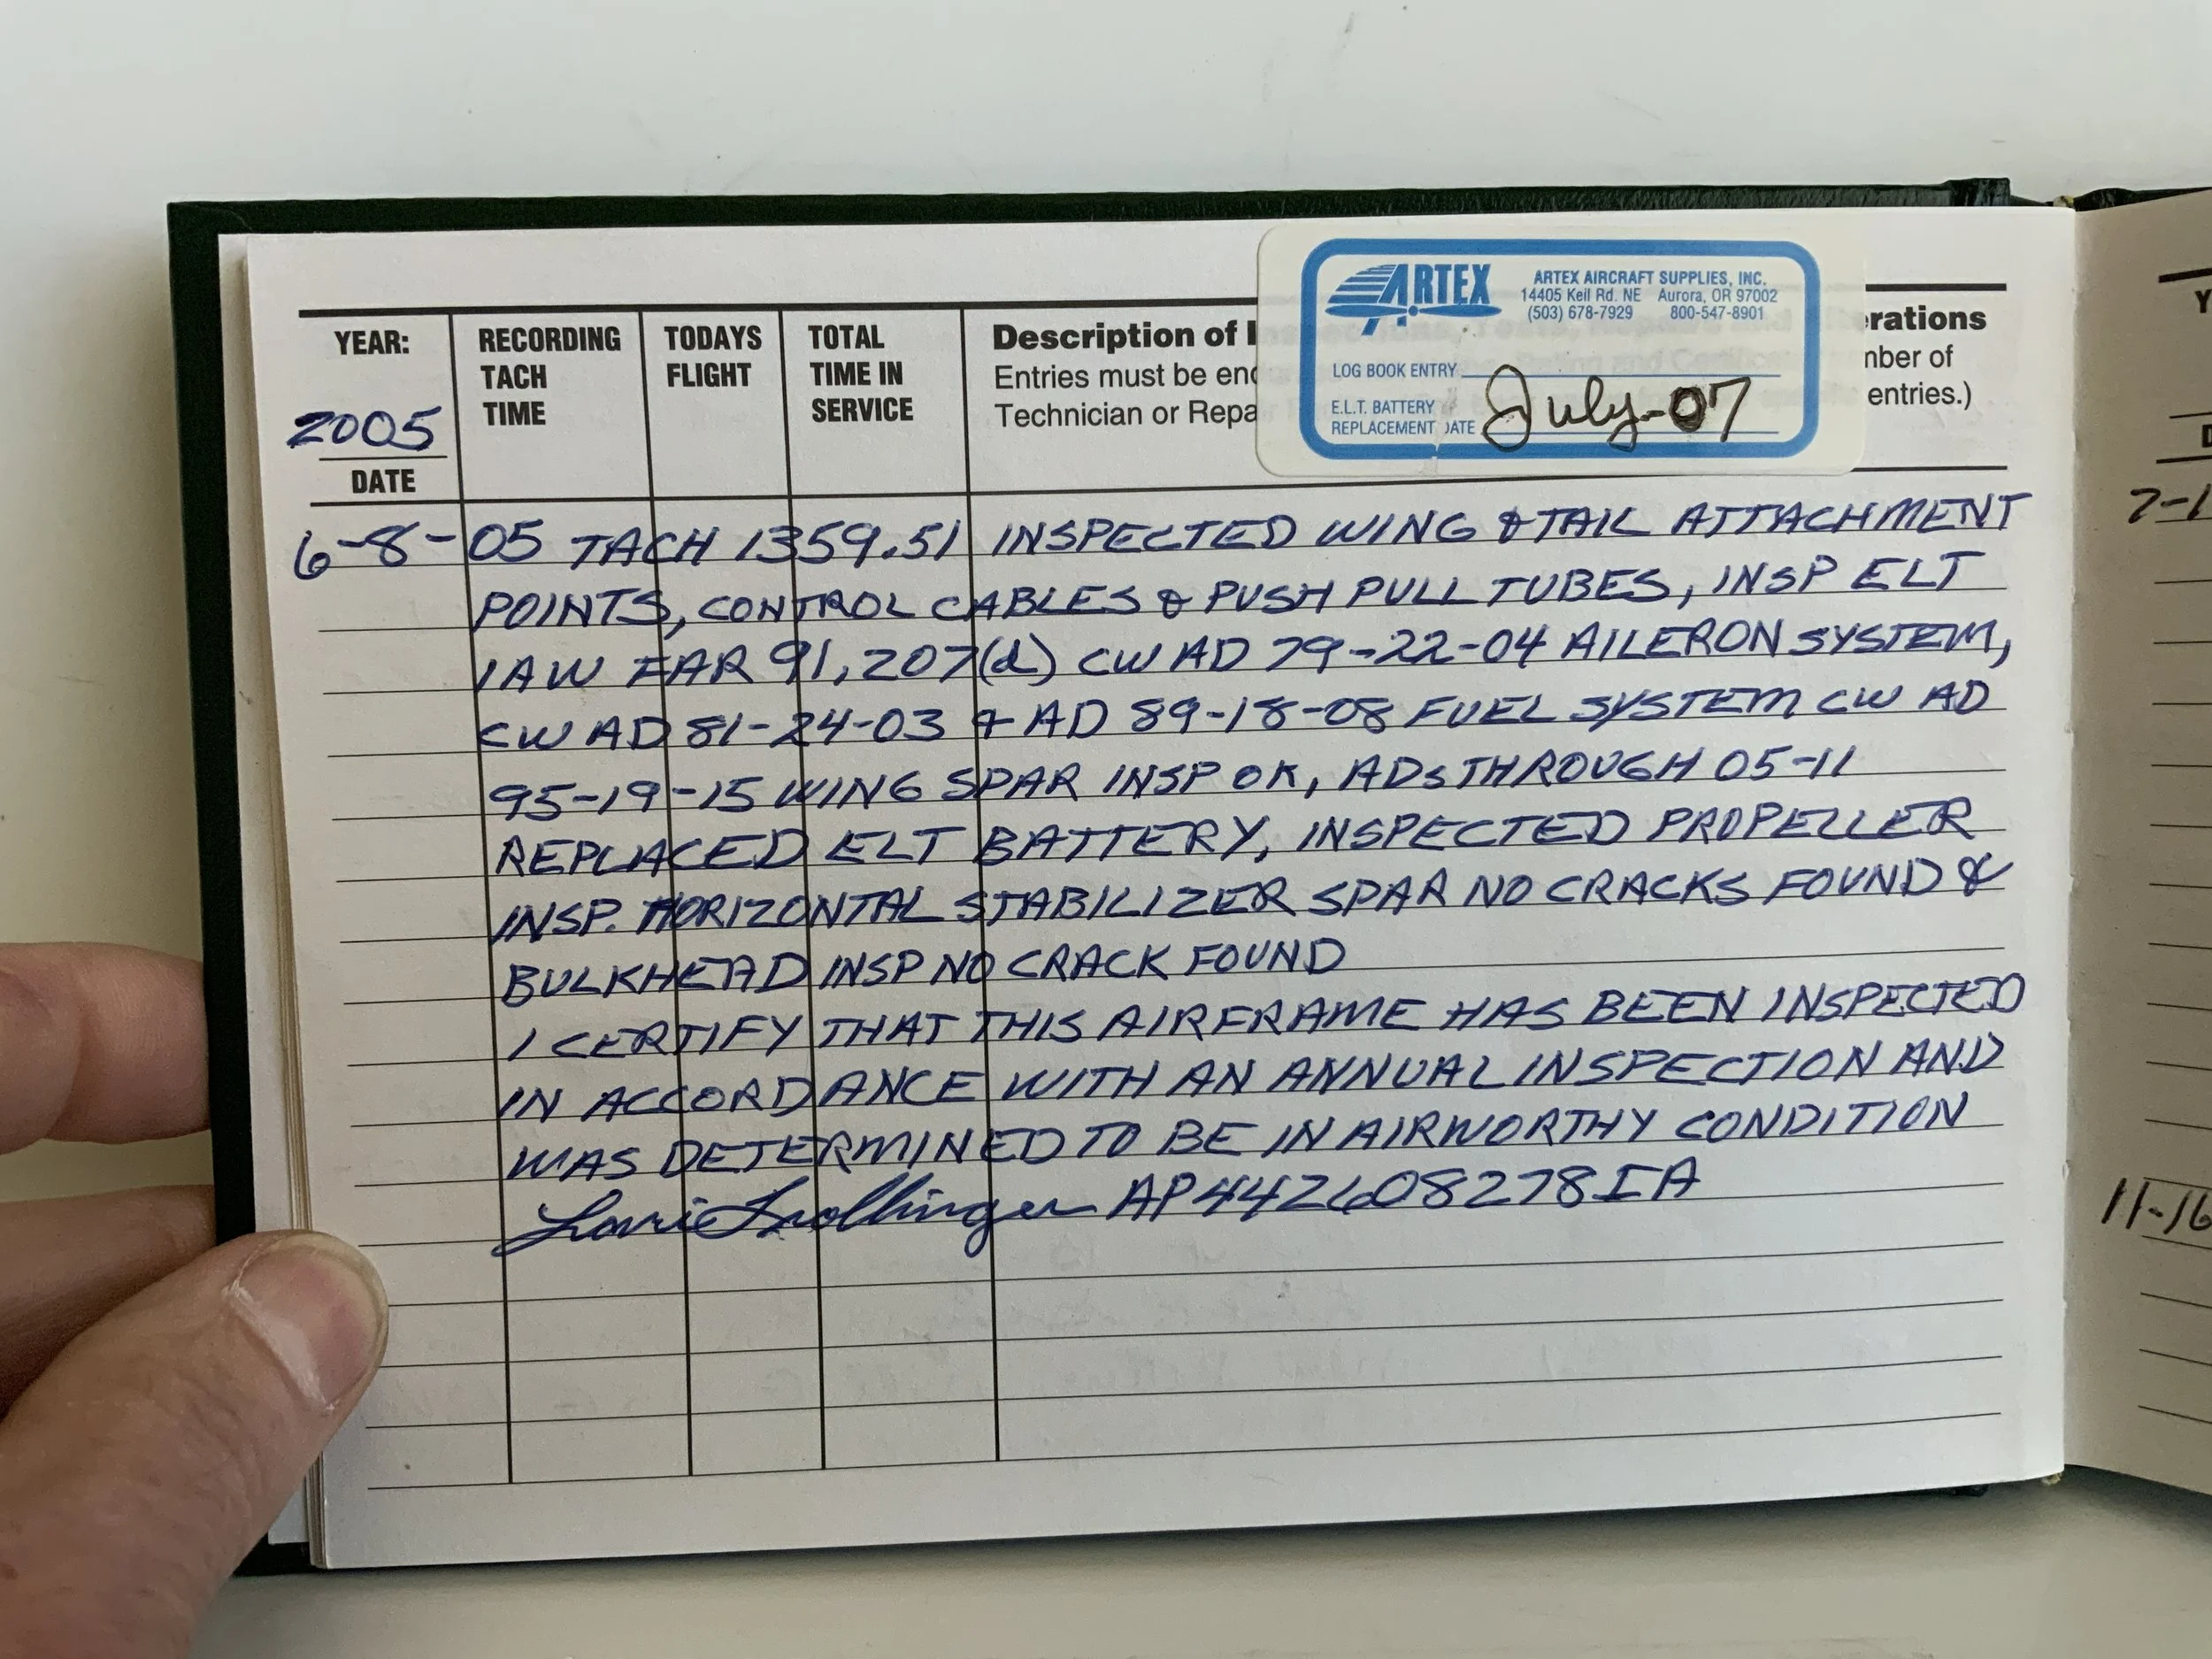 ARTEX
ARTEX AIRCRAFT SUPPLIES, INC.
14405 Keil Rd. NE Aurora, OR 97002
(503) 678-7929 800-547-8901
LOG BOOK ENTRY
E.L.T. BATTERY
REPLACEMENT DATE July-07
YEAR:
2005
DATE
RECORDING
TACH
TIME
TODAYS
FLIGHT
TOTAL
TIME IN
SERVICE
Description of I
Entries must be end
Technician or Repa
erations
mber of
entries.)
6-8-05 TACH 1359.51 INSPECTED WING & TAIL ATTACHMENT
POINTS, CONTROL CABLES & PUSH PULL TUBES, INSP ELT
IAW FAR 91,207(d) CW AD 79-22-04 AILERON SYSTEM,
CW AD 81-24-03 & AD 89-18-08 FUEL SYSTEM CW AD
95-19-15 WING SPAR INSP OK, ADs THROUGH 05-11
REPLACED ELT BATTERY, INSPECTED PROPELLER
INSP. HORIZONTAL STABILIZER SPAR NO CRACKS FOUND &
BULKHEAD INSP NO CRACK FOUND
I CERTIFY THAT THIS AIRFRAME HAS BEEN INSPECTED
IN ACCORDANCE WITH AN ANNUAL INSPECTION AND
WAS DETERMINED TO BE IN AIRWORTHY CONDITION
AP442608278IA
Y
7-1
11-16